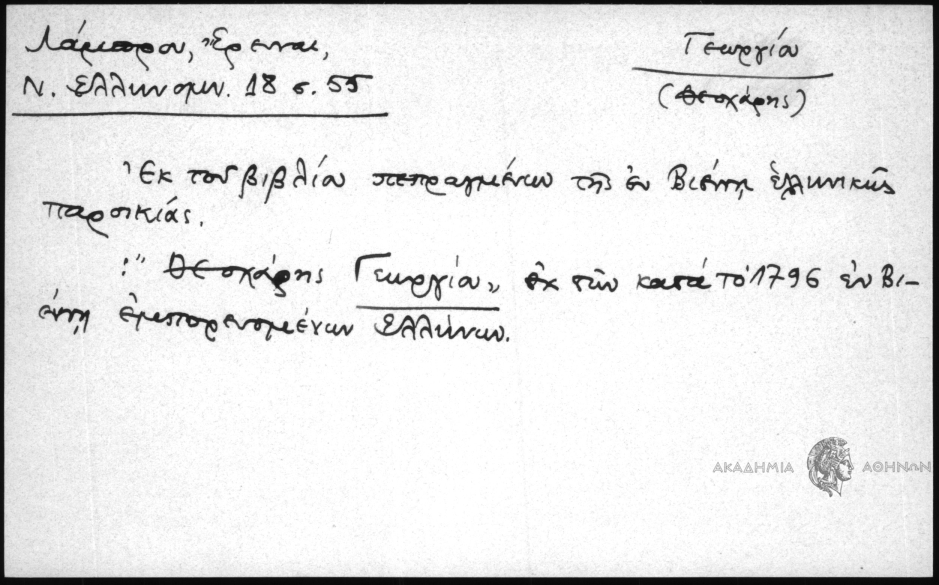 Λάμπρου, Ἔρευναι,
Ν. Ἑλληνομν. 18 σ. 55
Γεωργίου
(Θεοχάρης)
Ἐκ τοῦ βιβλίου πεπραγμένων τῆς ἐν Βιέννῃ ἑλληνικῆς
παροικίας.
:" Θεοχάρης Γεωργίου„ ἐκ τῶν κατά τό 1796 ἐν Βι-
έννῃ ἐμπορευομένων Ἑλλήνων.
ΑΚΑΔΗΜΙΑ ΑΘΗΝΩΝ